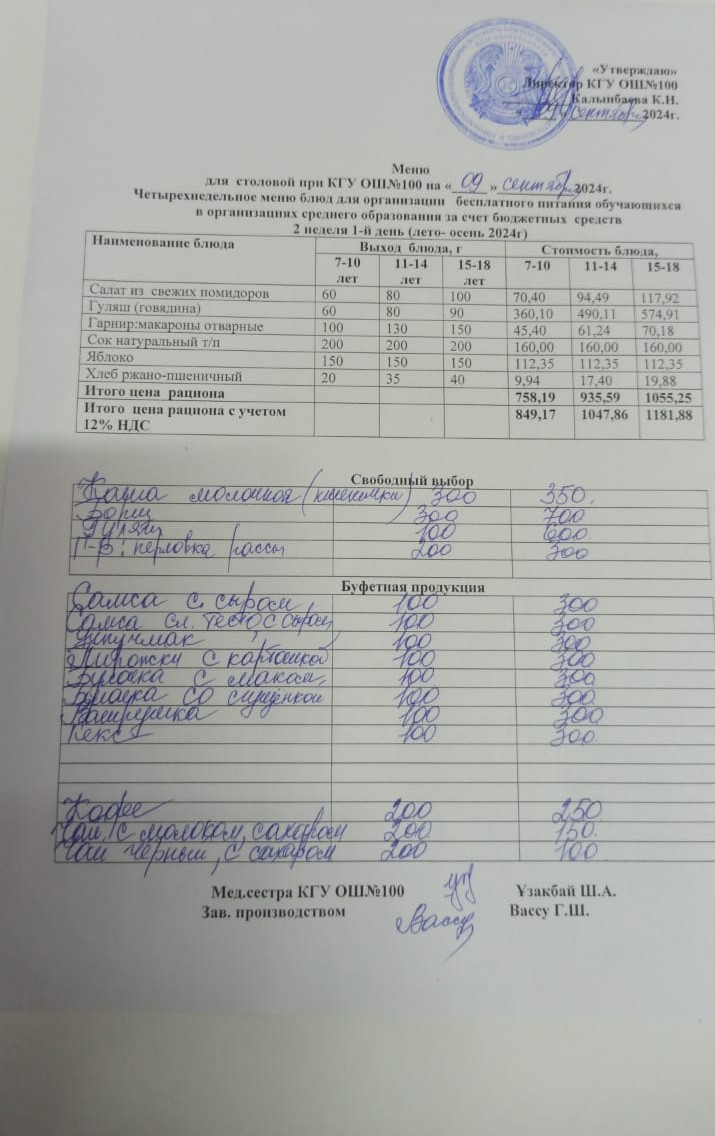 «Утверждаю»
Директор КГУ ОШ№100
Калынбаева К.Н.
сентябрь 2024г.
Меню
для столовой при КГУ ОШ№100 на « 09 » сентябрь 2024г.
Четырехнедельное меню блюд для организации бесплатного питания обучающихся
в организациях среднего образования за счет бюджетных средств
2 неделя 1-й день (лето- осень 2024г)
Наименование блюда Выход блюда, г Стоимость блюда,
7-10 лет 11-14 лет 15-18 лет 7-10 11-14 15-18
Салат из свежих помидоров 60 80 100 70,40 94,49 117,92
Гуляш (говядина) 60 80 90 360,10 490,11 574,91
Гарнир:макароны отварные 100 130 150 45,40 61,24 70,18
Сок натуральный т/п 200 200 200 160,00 160,00 160,00
Яблоко 150 150 150 112,35 112,35 112,35
Хлеб ржано-пшеничный 20 35 40 9,94 17,40 19,88
Итого цена рациона 758,19 935,59 1055,25
Итого цена рациона с учетом 849,17 1047,86 1181,88
12% НДС
Свободный выбор
Каша молочная 300 350.
Борщ 300 700
Гуляш 100 600
Г-р: перловка рассы 200 300
Буфетная продукция
Самса с сыром 100 300
Самса сл. тесто с сыром 100 300
100 300
Пирожки с картошкой 100 300
Булочка с маком, 100 300
Булочка со сгущенкой 100 300
Ватрушка 100 300
Кекс 100 300
Кофе 200 250
Чай с молоком, сахаром 200 150
Чай черный, с сахаром 200 100
Мед.сестра КГУ ОШ№100 Ұзакбай Ш.А.
Зав. производством Вассу Вассу Г.Ш.